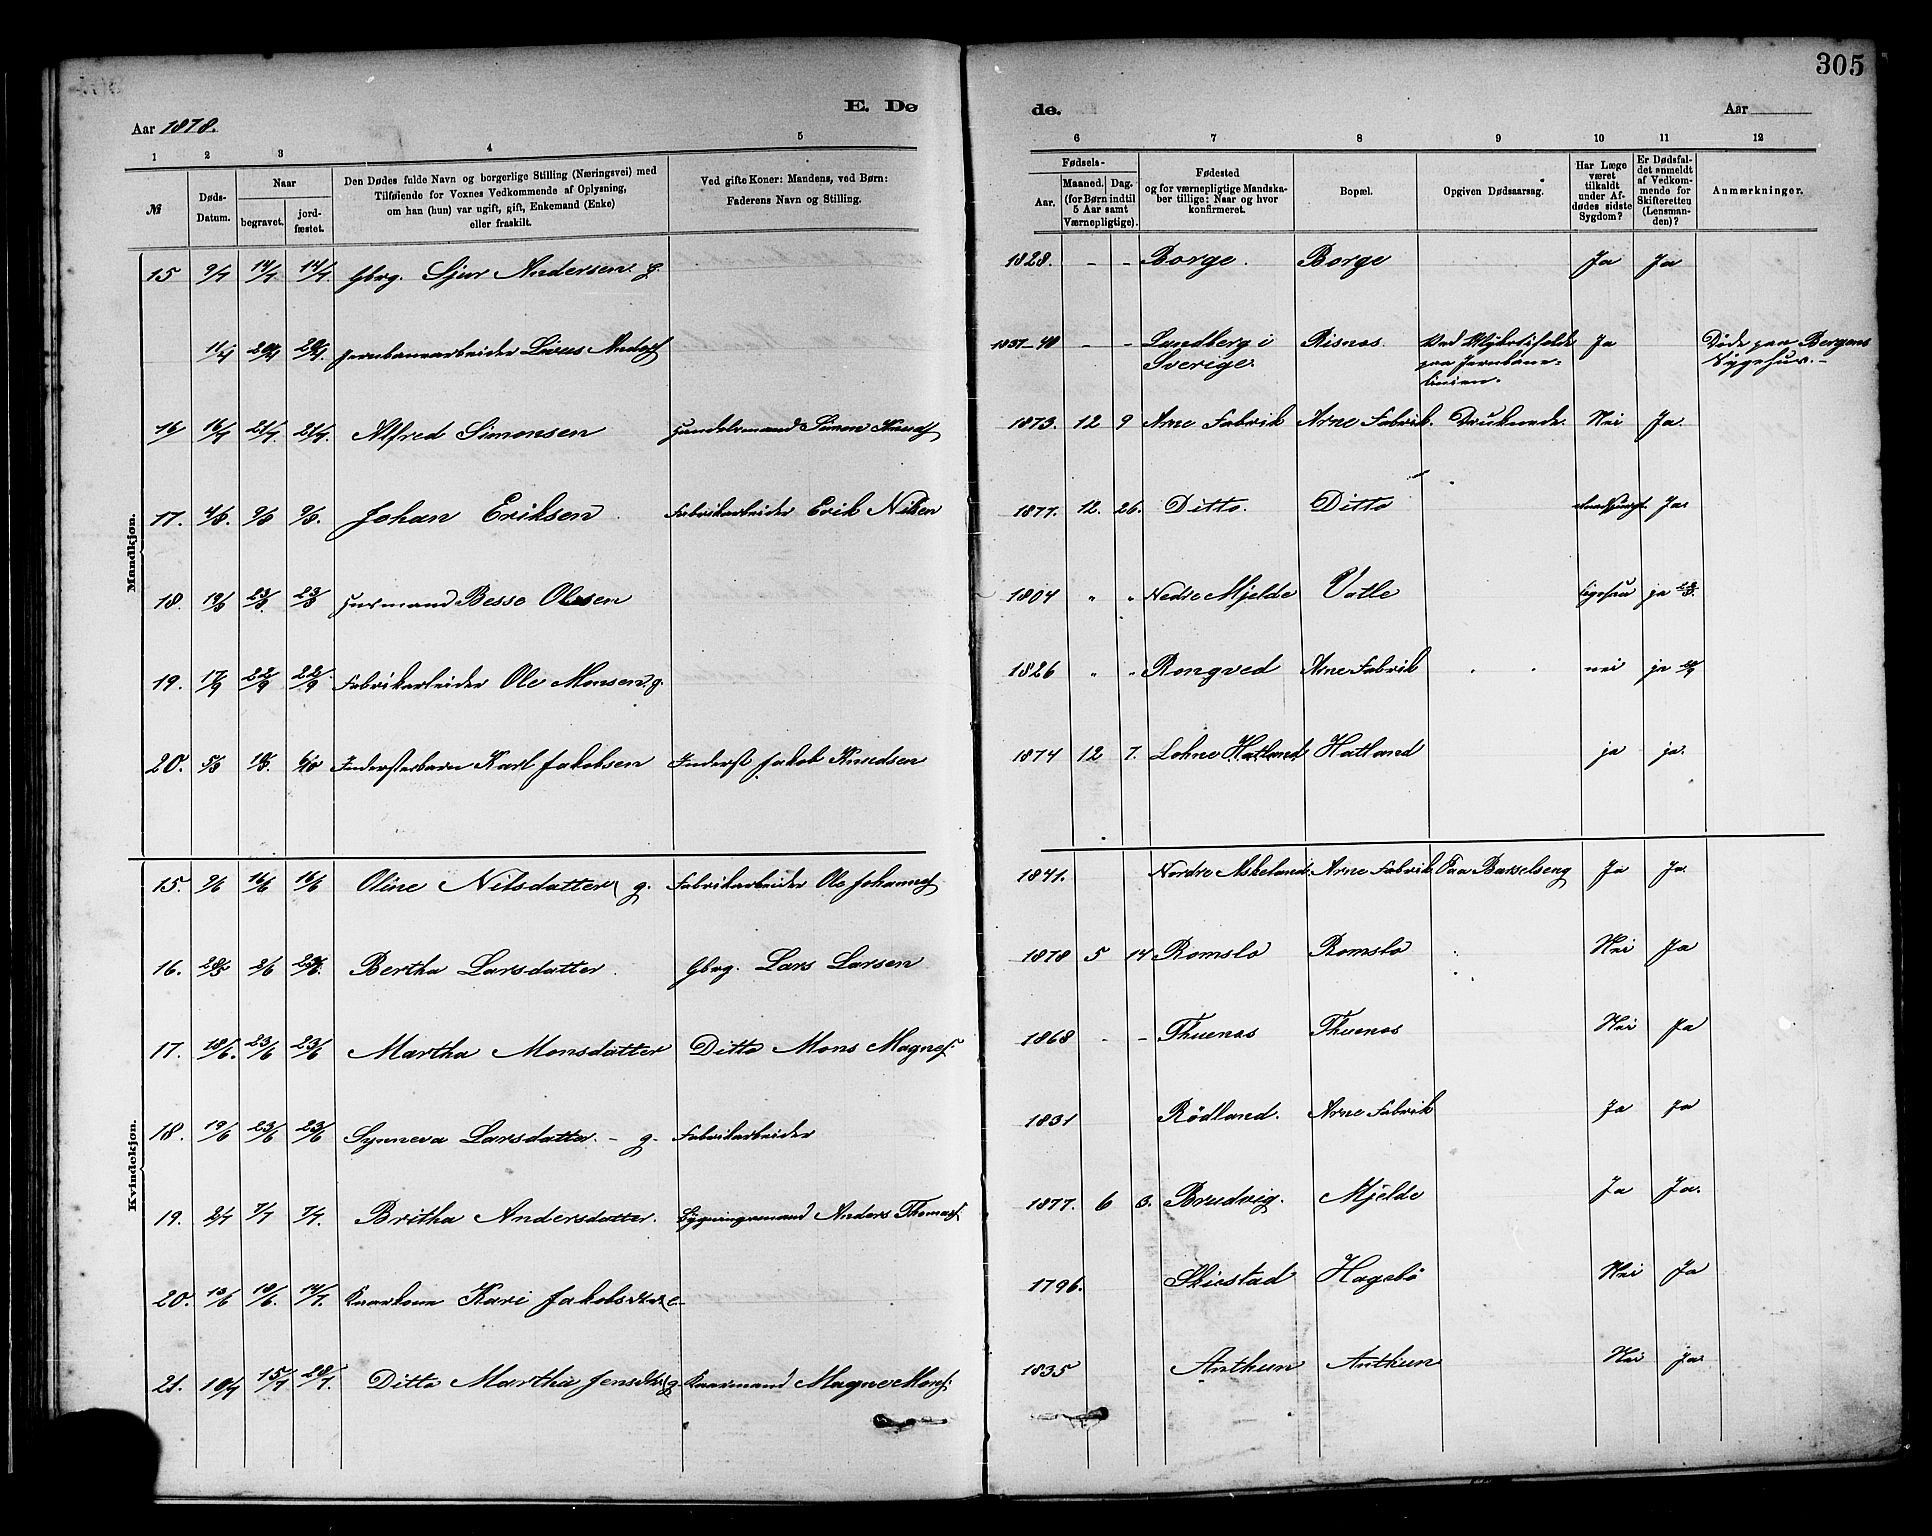 305
E. Dø
de.
Aar 1878.
Aar
1 2 3 4 5 6 7 8 9 10 11 12
№
Døds-
Datum.
Naar
begravet.
jord-
fæstet.
Den Dødes fulde Navn og borgerlige Stilling (Næringsvei) med
Tilføiende for Voxnes Vedkommende af Oplysning,
om han (hun) var ugift, gift, Enkemand (Enke)
eller fraskilt.
Ved gifte Koner: Mandens, ved Børn:
Faderens Navn og Stilling.
Fødsels-
Aar.
Maaned. Dag.
(for Børn indtil
5 Aar samt
Værnepligtige).
Fødested
og for værnepligtige Mandska-
ber tillige: Naar og hvor
konfirmeret.
Bopæl.
Opgiven Dødsaarsag.
Har Læge
været
tilkaldt
under Af-
dødes sidste
Sygdom?
Er Dødsfal-
det anmeldt
af Vedkom-
mende for
Skifteretten
(Lensman-
den)?
Anmærkninger.
Mandkjøn.
15 9/4 14/4 14/4 Gbrg. Sjur Andersen g. 1828. - - Borge. Borge Ja Ja
11/4 20/4 20/4 Jernbanearbeider 1837-40 - - Lundberg i Risnes. Ved Ja Døde paa Bergens
Sverige. paa Jernbane- Sygehus. -
linien.
16 16/4 21/4 21/4 Alfred Simonsen Handelsmand Simon 1873. 12 9 Arne Fabrik Arne Fabrik. Druknede. Nei Ja.
17. 4/8. 9/8 9/8. Johan Eriksen Fabrikarbeider Erik Nilsen 1877. 12. 26. Ditto. Ditto Ja.
18. 19/8 23/8 23/8 Husmand Besse Olsen 1804 " " Nedre Mjelde Vatle ligesaa ja
19. 17/9 22/9 22/9 Fabrikarbeider Ole Monsen g. 1826 " " Rongved Arne Fabrik nei ja
20. Inderstesbarn Karl Jakobsen Inderst Jakob Knudsen 1874 12 7. Lohne Hatland Hatland ja ja.
Kvindekjøn.
15 9/6 16/6 16/6 Oline Nilsdatter g. Fabrikarbeider Ole Johannes 1841. Nordre Askeland Arne Fabrik Paa Barselseng Ja Ja.
16. 28/5 2/6 23/6. Bertha Larsdatter. Gbrg. Lars Larsen 1878 5 14 Romslo Romslo Nei Ja
17. 18/6. 23/6 23/6 Martha Monsdatter Ditto Mons Magnes. 1868 - - Thuenes Thuenes Nei Ja
18. 19/6 23/6 23/6 Synneva Larsdatter. - g. Fabrikarbeider 1831 Rödland. Arne Fabrik Ja Ja
19. 2/7 7/7 7/7. Britha Andersdatter. Bygningsmand Anders Thomas. 1877. 6 3. Brudvig. Mjelde Ja Ja.
20. 13/6 18/6. 14/7. Kaarkone Kari Jakobsdtr. e. 1796. Skistad Hagebö Nei Ja
21. 10/7 15/7 28/7. Ditto Martha Jensdtr. g. Kaarmand Magne Mons. 1835 Anthun Anthun Nei Ja.